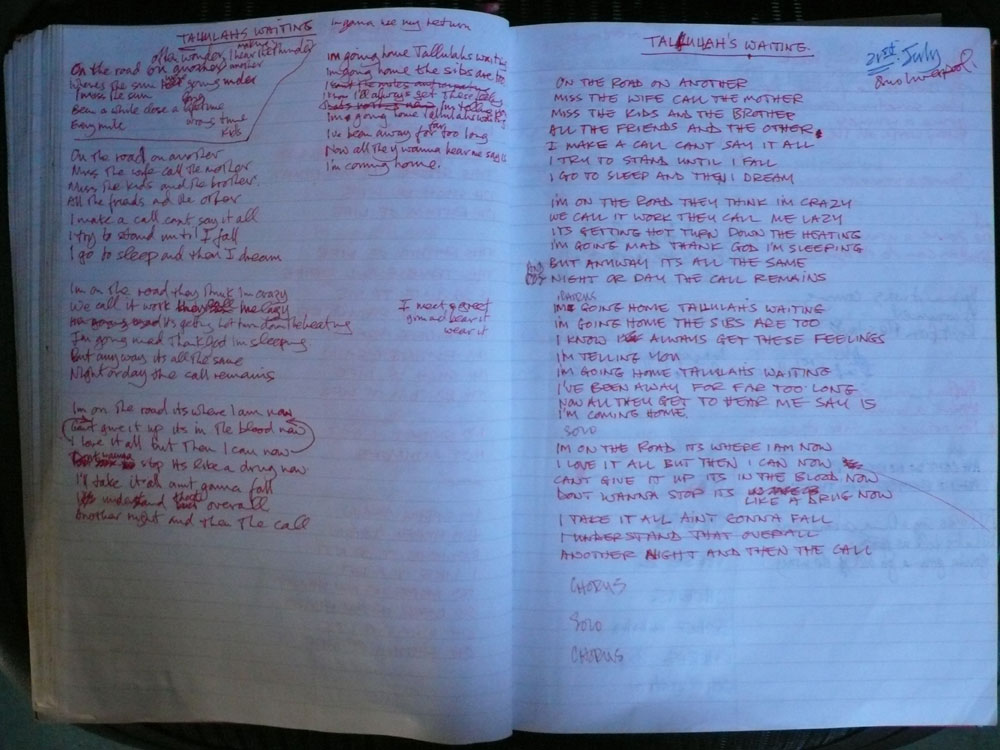 TALLULAHS WAITING
often wonder
making
I hear the thunder
On the road on another
another
Wheres the sun
going under
I miss the sun
Been a whole dose a lifetime
Evry mile
wrong time
kids
On the road on another
Miss the wife call the mother
Miss the kids and the brother.
All the friends and the other
I make a call cant say it all
I try to stand until I fall
I go to sleep and then I dream
Im on the road they think Im crazy
We call it work they call me lazy
its getting hot turn down the heating
Im going mad thank god im sleeping
But anyway its all the same
Night or day the call remains
Im on the road its where I am now
Cant give it up its in the blood now
I love it all but then I can now
Dont wanna stop its like a drug now
I'll take it all aint gonna fall
I understand that overall
Another night and then the call
my return
im going home Tallulahs waiting
im going home the sibs are too
I'll always get these feelings
im telling
Im going home Tallulahs waiting
I've been away for far too long
Now all they wanna hear me say is
I'm coming home.
I meet & greet
bear it
wear it
TALLULLAH'S WAITING.
21ST July
Liverpool.
ON THE ROAD ON ANOTHER
MISS THE WIFE CALL THE MOTHER
MISS THE KIDS AND THE BROTHER
ALL THE FRIENDS AND THE OTHER.
I MAKE A CALL CANT SAY IT ALL
I TRY TO STAND UNTIL I FALL
I GO TO SLEEP AND THEN I DREAM
I'M ON THE ROAD THEY THINK I'M CRAZY
WE CALL IT WORK THEY CALL ME LAZY
ITS GETTING HOT TURN DOWN THE HEATING
I'M GOING MAD THANK GOD I'M SLEEPING
BUT ANYWAY ITS ALL THE SAME
NIGHT OR DAY THE CALL REMAINS
CHORUS
IM GOING HOME TALLULAH'S WAITING
IM GOING HOME THE SIBS ARE TOO
I KNOW I ALWAYS GET THESE FEELINGS
IM TELLING YOU
IM GOING HOME TALLULAH'S WAITING
I'VE BEEN AWAY FOR FAR TOO LONG
NOW ALL THEY GET TO HEAR ME SAY IS
I'M COMING HOME.
SOLO
IM ON THE ROAD ITS WHERE I AM NOW
I LOVE IT ALL BUT THEN I CAN NOW
CANT GIVE IT UP ITS IN THE BLOOD NOW
DONT WANNA STOP ITS LIKE A DRUG NOW
I TAKE IT ALL AINT GONNA FALL
I UNDERSTAND THAT OVERALL
ANOTHER NIGHT AND THEN THE CALL
CHORUS
SOLO
CHORUS